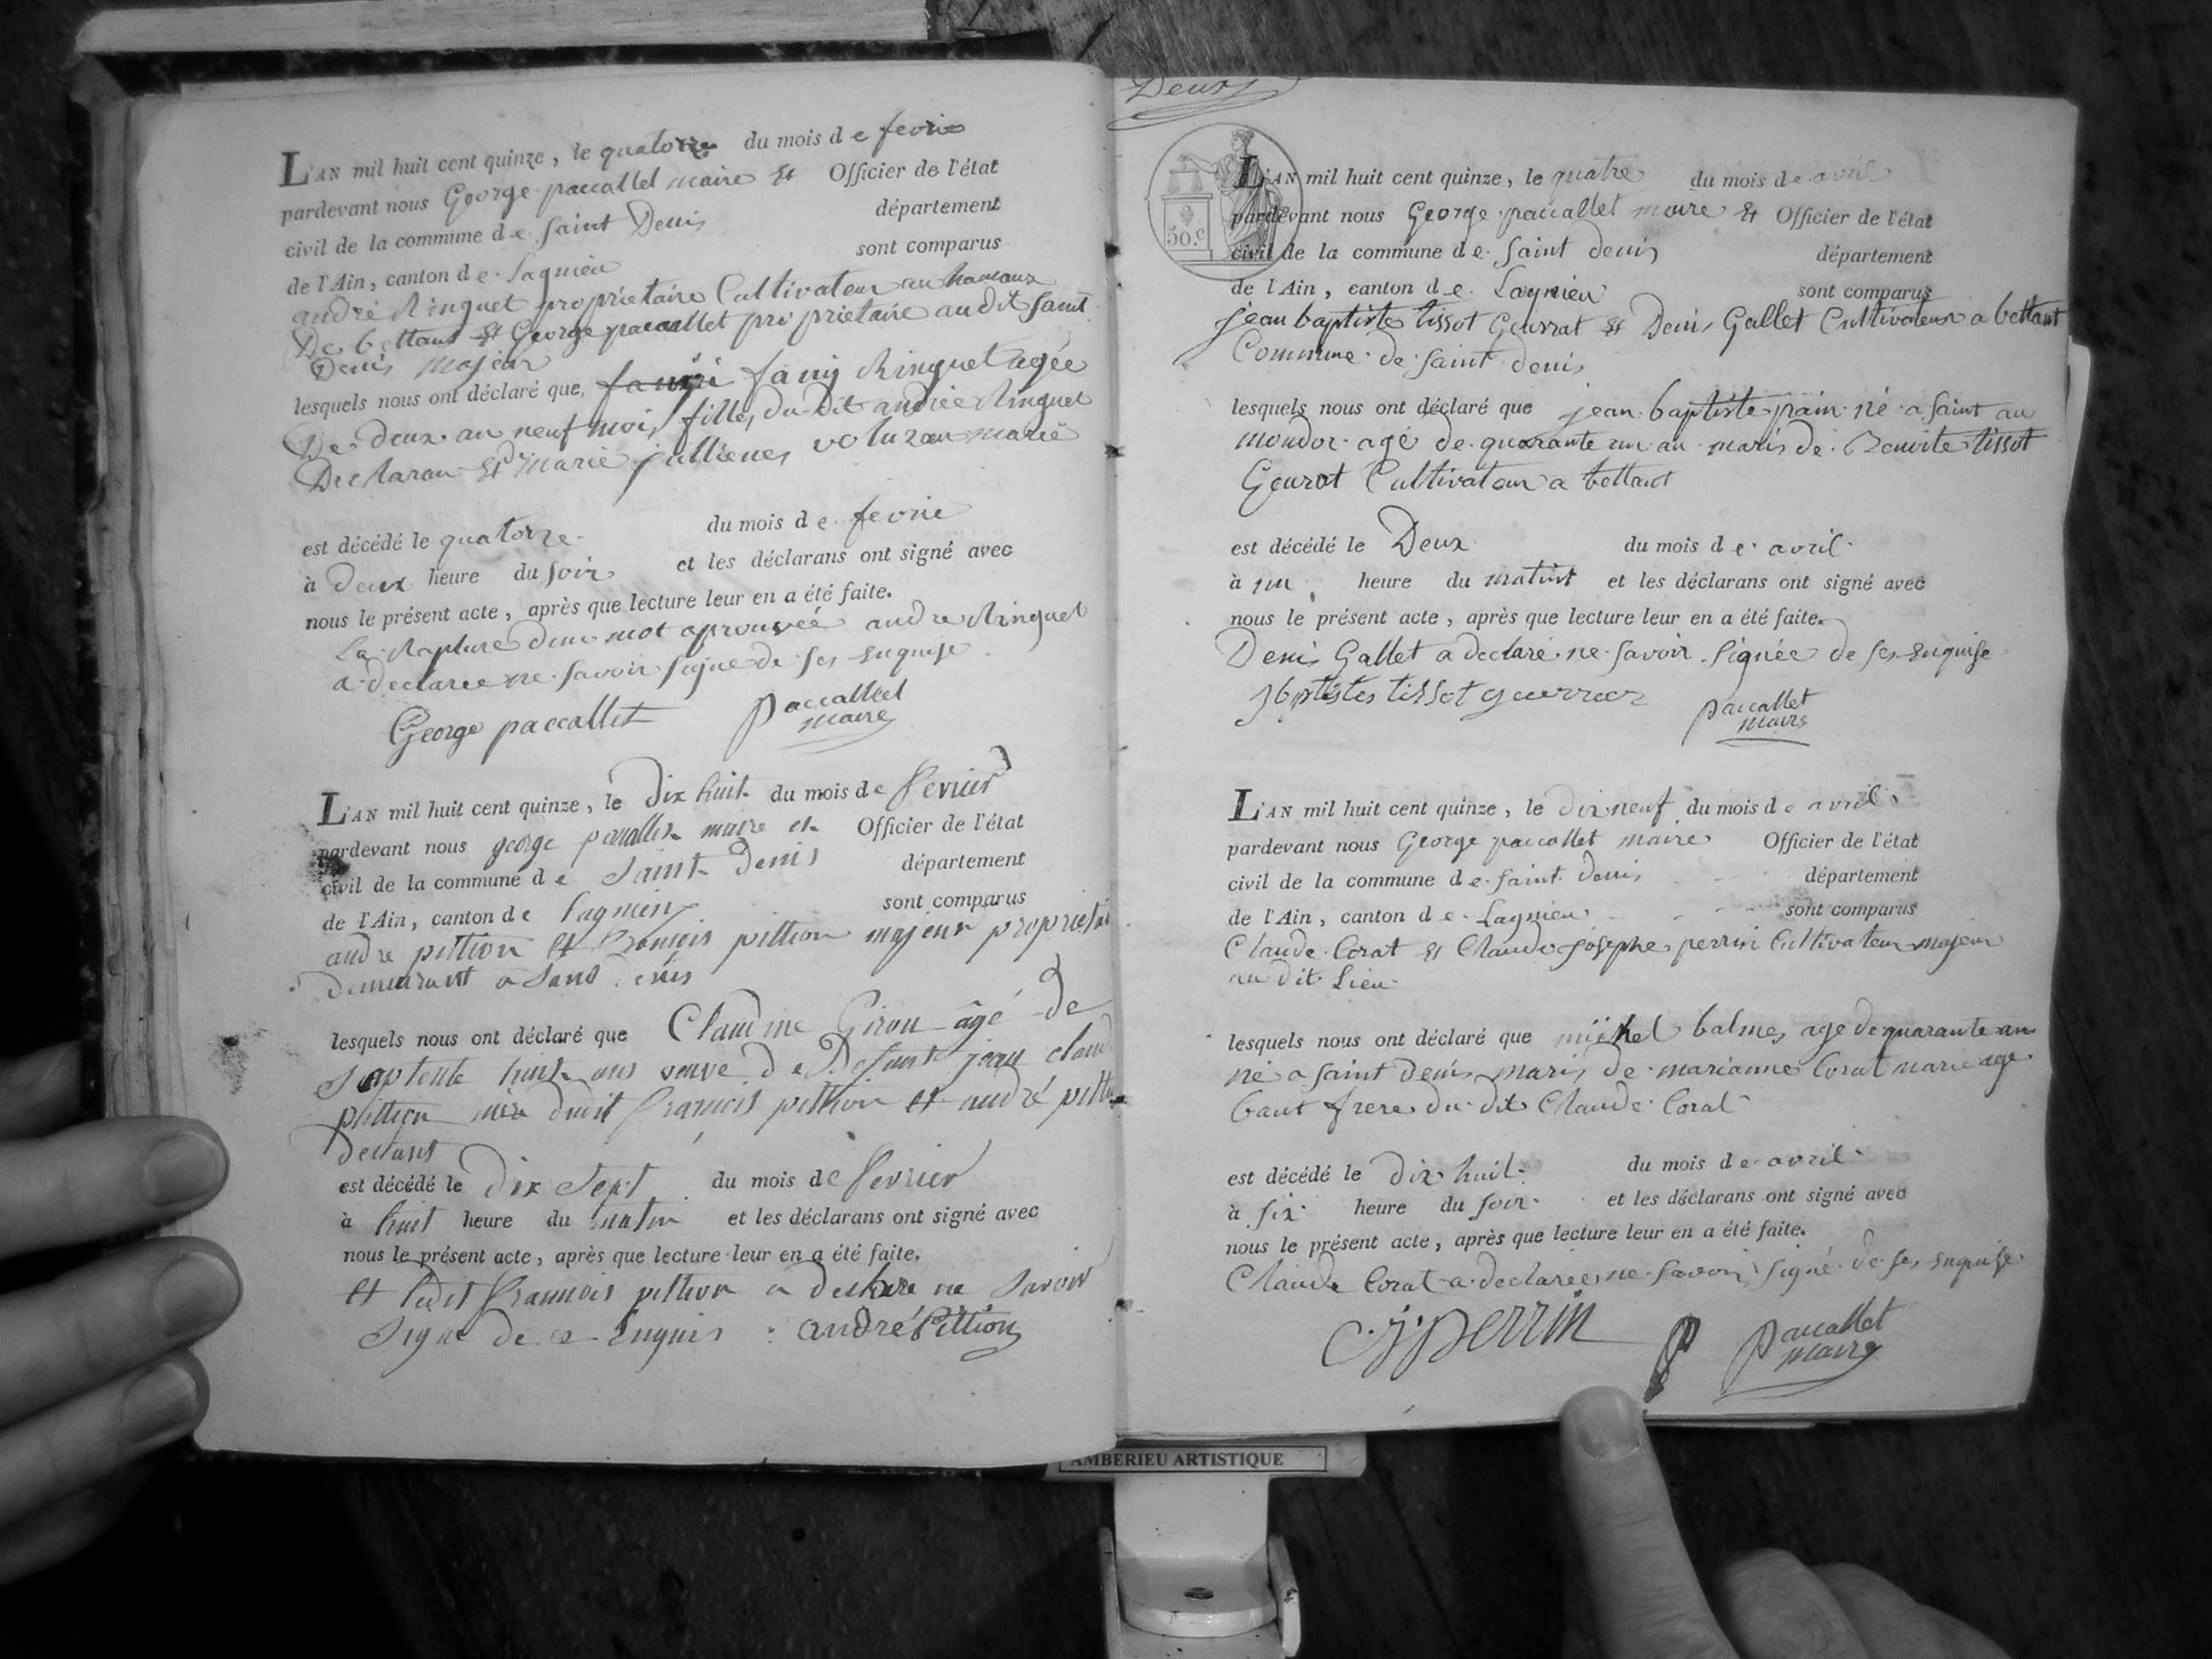 L'AN mil huit cent quinze, le quatorze du mois de fevrie
pardevant nous George paccallet maire Et Officier de l'état
civil de la commune de Saint Denis département
de l'Ain, canton de Lagnieu sont comparus
andré Ringuet proprietaire Cultivateur au hameaux
De bettant Et George paccallet proprietaire au dit saint
Denis majeur
lesquels nous ont déclaré que fanÿ Ringuet agée
De deux an neuf mois filles du Dit andrée Ringuet
Declaran Et marie jullienes marié
est décédé le quatorze du mois de fevrie
à deux heure du soir et les déclarans ont signé avec
nous le présent acte, après que lecture leur en a été faite.
La Rapture dun mot aprouvée andre Ringuet
a declaree ne savoir signe de ses Enquise
George paccallet Paccallet
maire
L'AN mil huit cent quinze, le Dix huit du mois de fevrier
pardevant nous george paccallet maire et Officier de l'état
civil de la commune de Saint Denis département
de l'Ain, canton de Lagnieu sont comparus
andre pittion et françois pittion majeur proprietai
demeurant a Saint denis
lesquels nous ont déclaré que Claudine Giron âgé de
septente huit ans veuve de Defunt jean claud
pittion françois pittion et andré pitti
declans
est décédé le Dix Sept du mois de fevrier
à huit heure du matin et les déclarans ont signé avec
nous le présent acte, après que lecture leur en a été faite.
et ledit françois pittion a declare ne savoir
signe de ce Enquis : andré Pittion
Deux
50.c
L'AN mil huit cent quinze, le quatre du mois de avril
pardevant nous George paccallet maire Et Officier de l'état
civil de la commune de Saint denis département
de l'Ain, canton de Lagnieu sont comparus
jean baptiste tissot Gourrat Et Denis Gallet Cultivateur a bettant
Commune de saint denis
lesquels nous ont déclaré que jean baptiste pain né a saint au
mondor agé de quarante un an maris de Benoite tissot
Gourat Cultivateur a bettant
est décédé le Deux du mois de avril
à un heure du matint et les déclarans ont signé avec
nous le présent acte, après que lecture leur en a été faite.
Denis Gallet a declaré ne savoir signée de ses Enquise
tissot paccallet
maire
L'AN mil huit cent quinze, le dix neuf du mois de avril
pardevant nous George paccallet maire Officier de l'état
civil de la commune de saint denis département
de l'Ain, canton de Lagnieu sont comparus
Claude Corat Et Claude Josephe perrin Cultivateur majeur
au dit Lieu
lesquels nous ont déclaré que michel balmes age de quarante an
né a saint Denis maris de marianne Corat
baut frere du dit Claude Corat
est décédé le dix huit du mois de avril
à six heure du soir et les déclarans ont signé avec
nous le présent acte, après que lecture leur en a été faite.
Claude Corat a declarée ne savoir signé de ses Enquise
C j perrin Paccallet
maire
AMBERIEU ARTISTIQUE